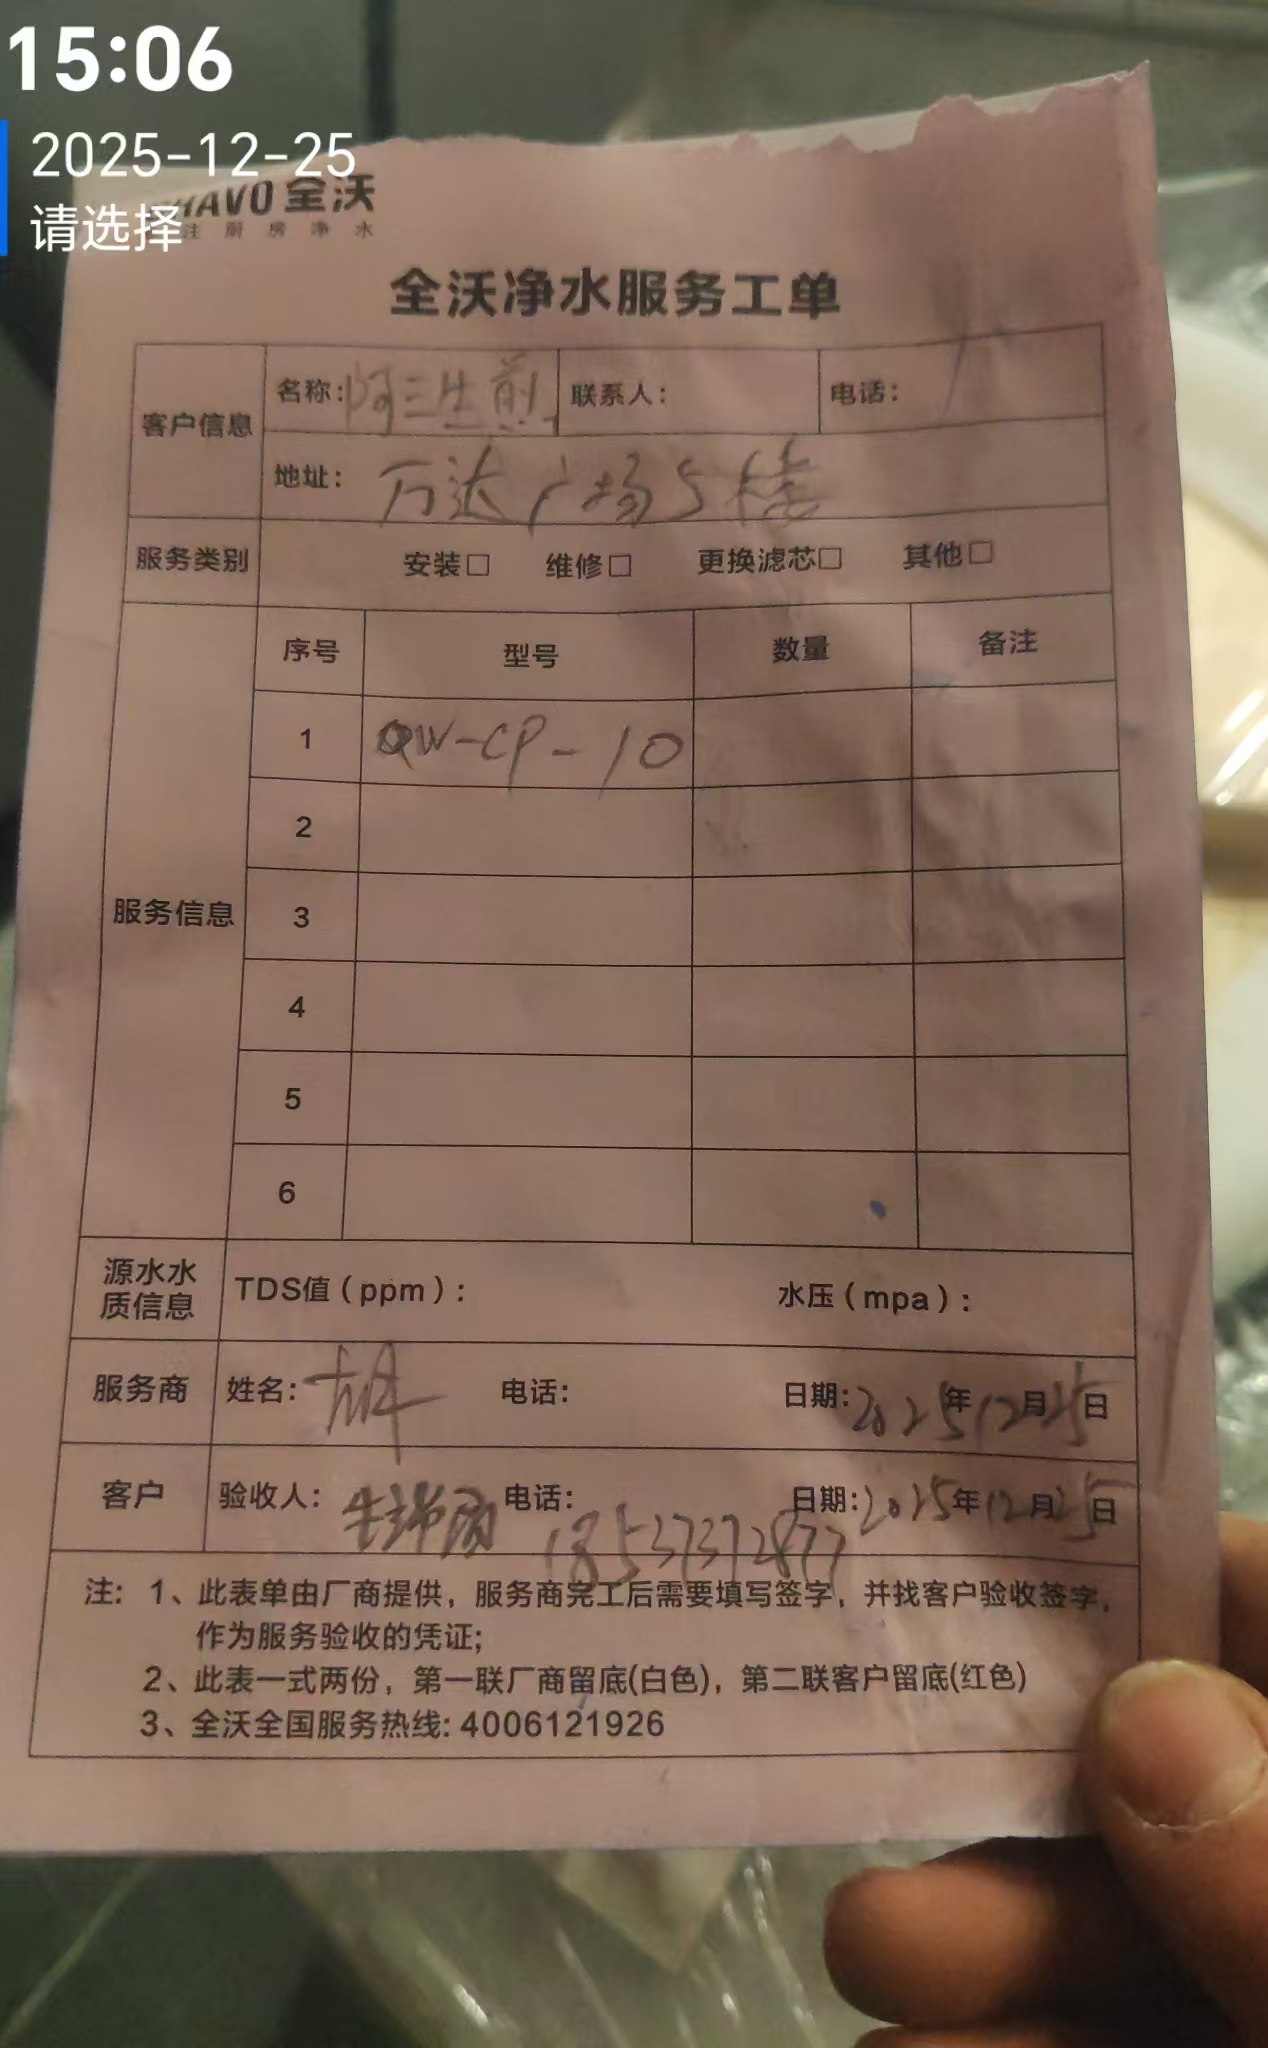 15:06
2025-12-25
请选择
HAVO 全沃
注厨房净水
全沃净水服务工单
客户信息
名称:阿三生煎 联系人: 电话:
地址: 万达广场5楼
服务类别 安装□ 维修□ 更换滤芯□ 其他□
服务信息
序号 型号 数量 备注
1 QW-CP-10
2
3
4
5
6
源水水质信息 TDS值(ppm): 水压(mpa):
服务商 姓名: 电话: 日期:2025年12月25日
客户 验收人: 电话: 日期:2025年12月25日
18537372877
注: 1、此表单由厂商提供,服务商完工后需要填写签字,并找客户验收签字,
作为服务验收的凭证;
2、此表一式两份,第一联厂商留底(白色),第二联客户留底(红色)
3、全沃全国服务热线: 4006121926